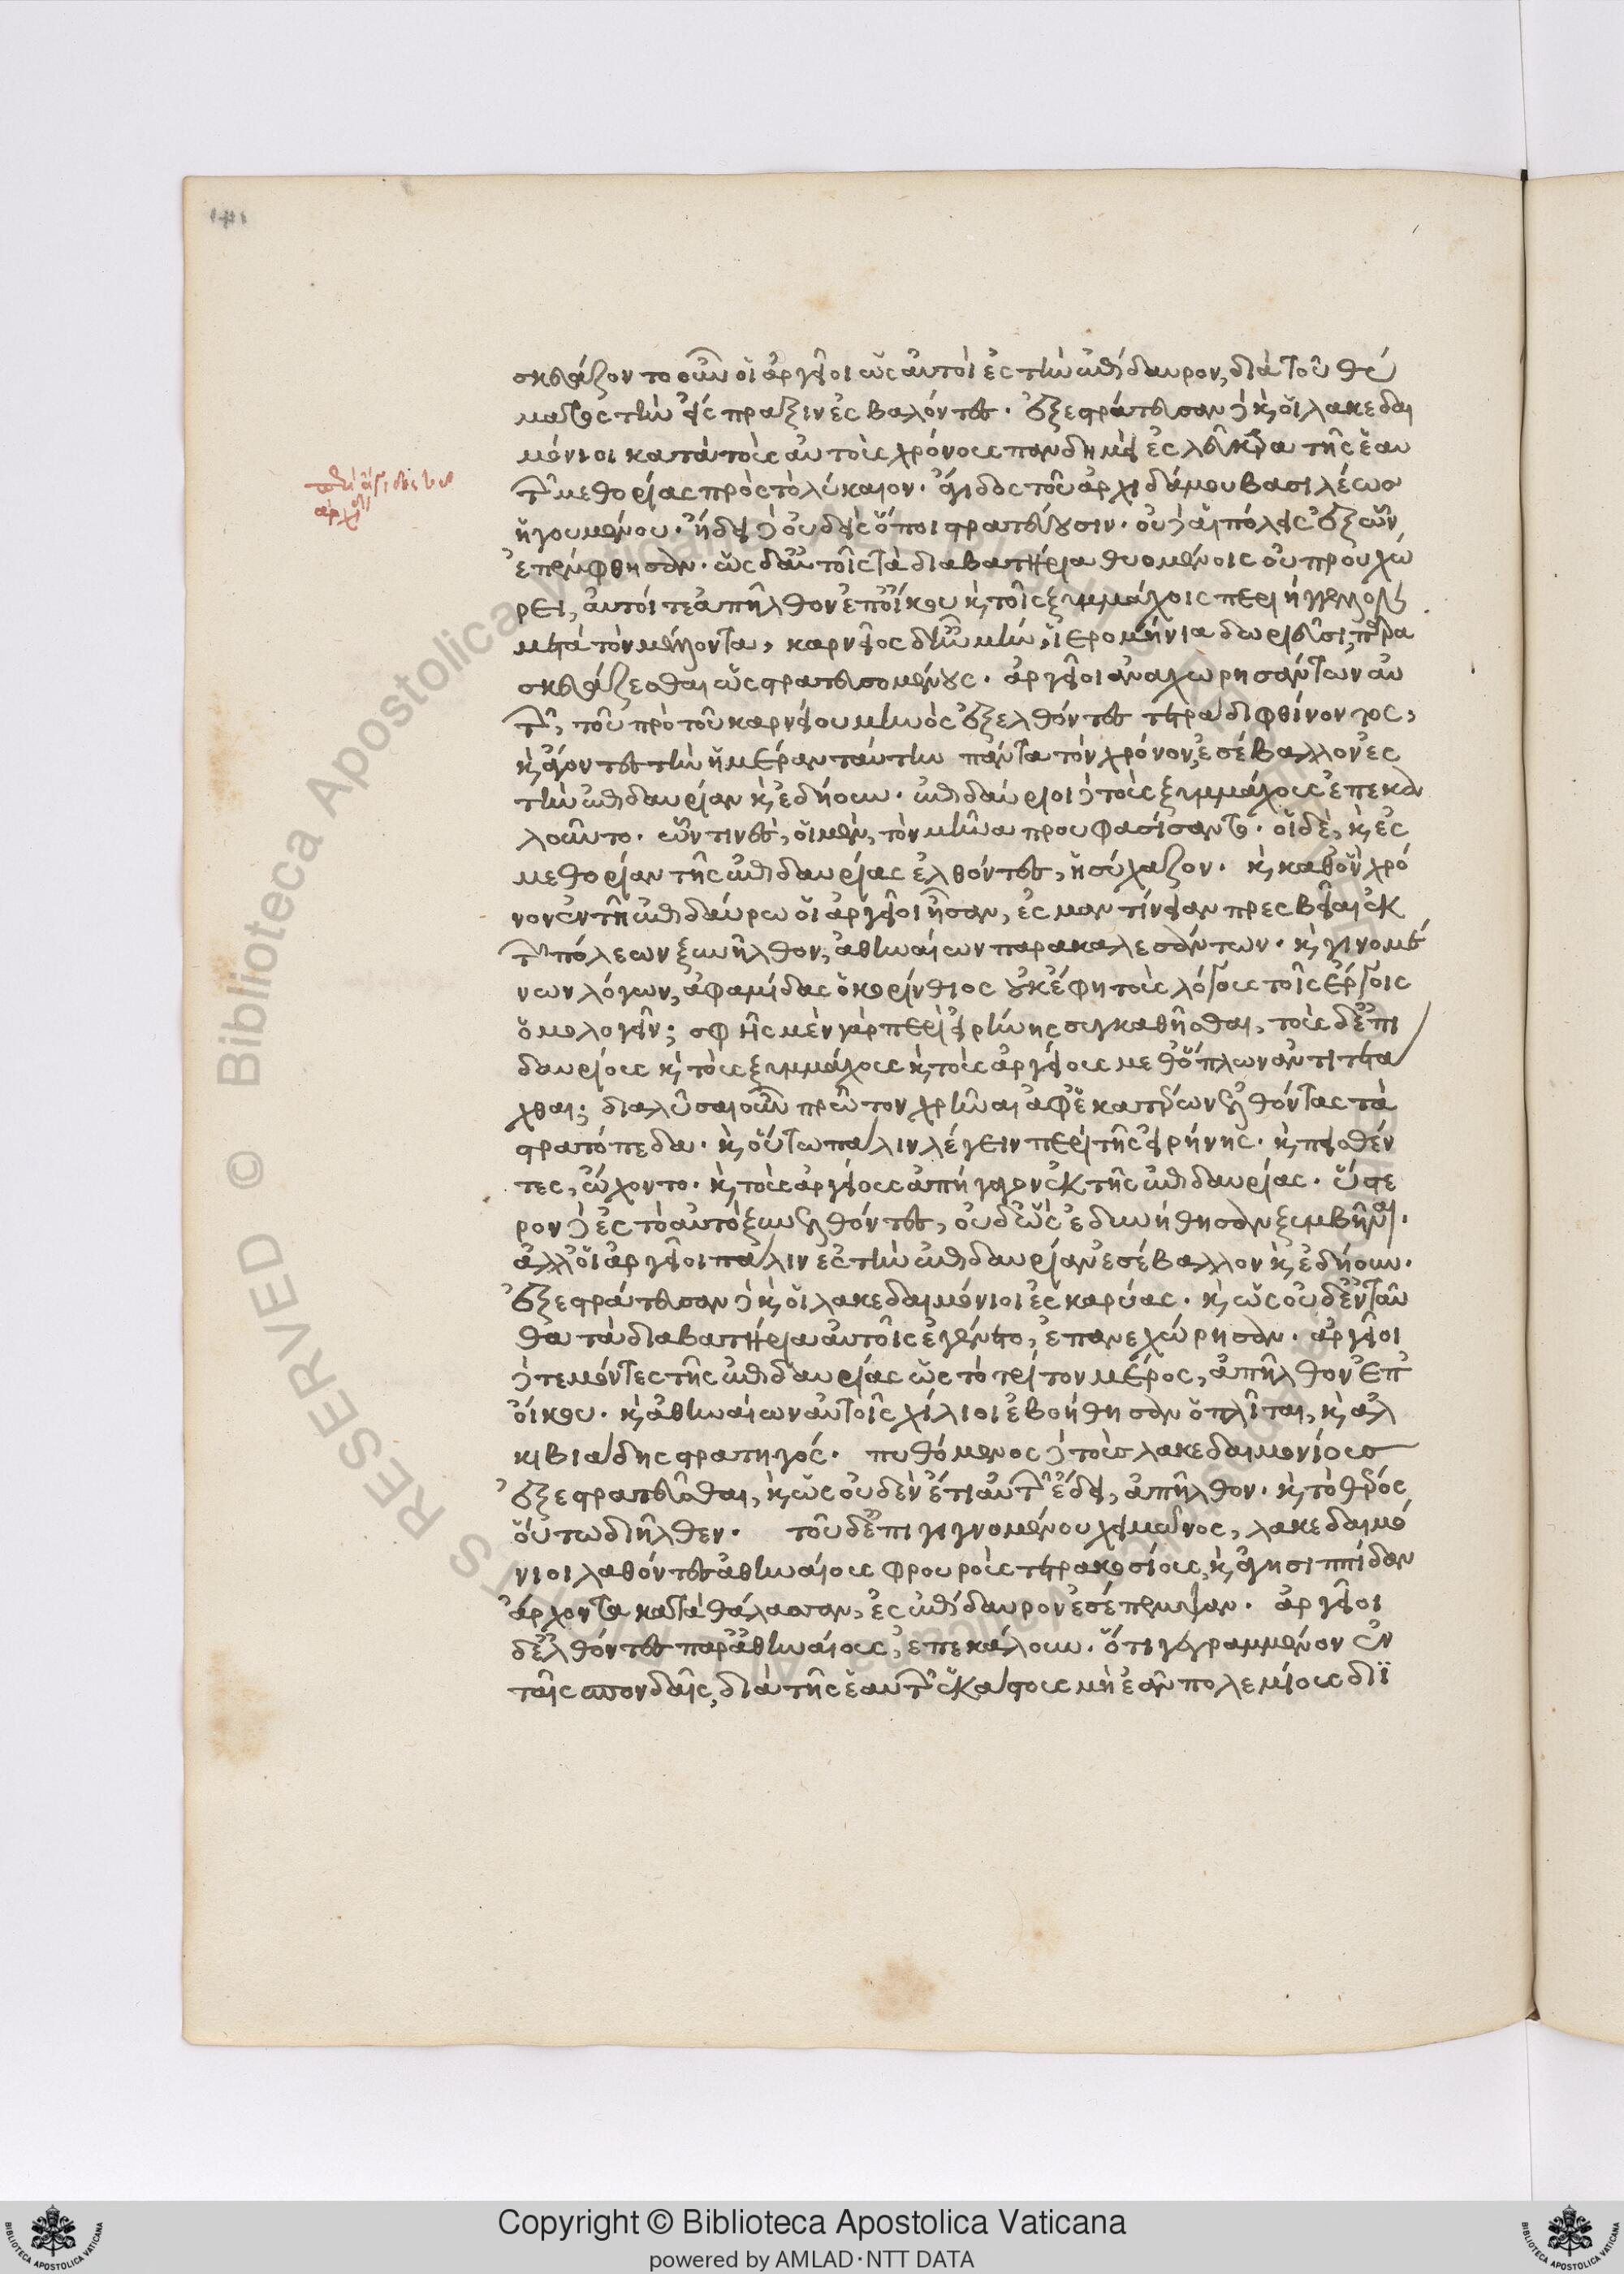 σκευάζοντο οὖν οἱ ἀργεῖοι ὡς αὐτοὶ ἐς τὴν ἐπίδαυρον, διὰ τοῦ θύ
ματος τὴν ἔσπραξιν ἐσβαλόντες. ἐξεστράτευσαν δὲ καὶ οἱ λακεδαι
μόνιοι κατὰ τοὺς αὐτοὺς χρόνους πανδημεὶ ἐς λεῦκτρα τῆς ἑαυ
τῶν μεθορίας πρὸς τὸ λύκαιον. ἄγιδος τοῦ ἀρχιδάμου βασιλέως
ἡγουμένου. ᾔδει δὲ οὐδεὶς ὅποι στρατεύουσιν. οὐδὲ αἱ πόλεις ἐξ ὧν
ἐπέμφθησαν. ὡς δ' αὐτοῖς τὰ διαβατήρια θυομένοις οὐ προυχώ
ρει, αὐτοί τε ἀπῆλθον ἐπ' οἴκου καὶ τοῖς ξυμμάχοις περιήγγειλαν
μετὰ τὸν μέλλοντα, καρνεῖος δ' ἦν μὴν, ἱερομήνια δωριεῦσι, παρα
σκευάζεσθαι ὡς στρατευσομένους. ἀργεῖοι ἀναχωρησάντων αὐ
τῶν, τοῦ πρὸ τοῦ καρνείου μηνὸς ἐξελθόντες τετράδι φθίνοντος,
καὶ ἄγοντες τὴν ἡμέραν ταύτην πάντα τὸν χρόνον, ἐσέβαλλον ἐς
τὴν ἐπιδαυρίαν καὶ ἐδῄουν. ἐπιδαύριοι δὲ τοὺς ξυμμάχους ἐπεκα
λοῦντο. ὧν τινὲς, οἱ μὲν, τὸν μῆνα προυφασίσαντο. οἱ δὲ, καὶ ἐς
μεθορίαν τῆς ἐπιδαυρίας ἐλθόντες, ἡσύχαζον. καὶ καθ' ὃν χρό
νον ἐν τῇ ἐπιδαύρω οἱ ἀργεῖοι ἦσαν, ἐς μαντίνειαν πρεσβεῖαι ἐκ
τῶν πόλεων ξυνῆλθον, ἀθηναίων παρακαλεσάντων. καὶ γινομέ
νων λόγων, ἐφαμίδας ὁ κορίνθιος οὐκ ἔφη τοὺς λόγους τοῖς ἔργοις
ὁμολογεῖν; σφεῖς μὲν γὰρ περὶ εἰρήνης συγκαθῆσθαι, τοὺς δ' ἐπι
δαυρίους καὶ τοὺς ξυμμάχους καὶ τοὺς ἀργείους μεθ' ὅπλων ἀντιτετά
χθαι; διαλῦσαι οὖν πρῶτον χρῆναι ἀφ' ἑκατέρων ἐλθόντας τὰ
στρατόπεδα. καὶ οὕτω πάλιν λέγειν περὶ τῆς εἰρήνης. καὶ πεισθέν
τες, ᾤχοντο. καὶ τοὺς ἀργείους ἀπήγαγον ἐκ τῆς ἐπιδαυρίας. ὕστε
ρον δὲ ἐς τὸ αὐτὸ ξυνελθόντες, οὐδ' ὣς ἐδυνήθησαν ξυμβῆναι.
ἀλλ' οἱ ἀργεῖοι πάλιν ἐς τὴν ἐπιδαυρίαν ἐσέβαλλον καὶ ἐδῄουν.
ἐξεστράτευσαν δὲ καὶ οἱ λακεδαιμόνιοι ἐς καρύας. καὶ ὡς οὐδ' ἐνταῦ
θα τὰ διαβατήρια αὐτοῖς ἐγένετο, ἐπανεχώρησαν. ἀργεῖοι
δὲ τεμόντες τῆς ἐπιδαυρίας ὡς τὸ τρίτον μέρος, ἀπῆλθον ἐπ'
οἴκου. καὶ ἀθηναίων αὐτοῖς χίλιοι ἐβοήθησαν ὁπλῖται, καὶ ἀλ
κιβιάδης στρατηγός. πυθόμενος δὲ τοὺς λακεδαιμονίους
ἐξεστρατεῦσθαι, καὶ ὡς οὐδὲν ἔτι αὐτῶν ἔδει, ἀπῆλθον. καὶ τὸ θέρος
οὕτω διῆλθεν. τοῦ δ' ἐπιγιγνομένου χειμῶνος, λακεδαιμό
νιοι λαθόντες ἀθηναίους φρουροὺς τετρακοσίους, καὶ ἀγησιππίδαν
ἄρχοντα κατὰ θάλασσαν, ἐς ἐπίδαυρον ἐσέπεμψαν. ἀργεῖοι
δ' ἐλθόντες παρ' ἀθηναίους, ἐπεκάλουν. ὅτι γεγραμμένον ἐν
ταῖς σπονδαῖς, διὰ τῆς ἑαυτῶν ἑκάστους μὴ ἐᾶν πολεμίους διϊ